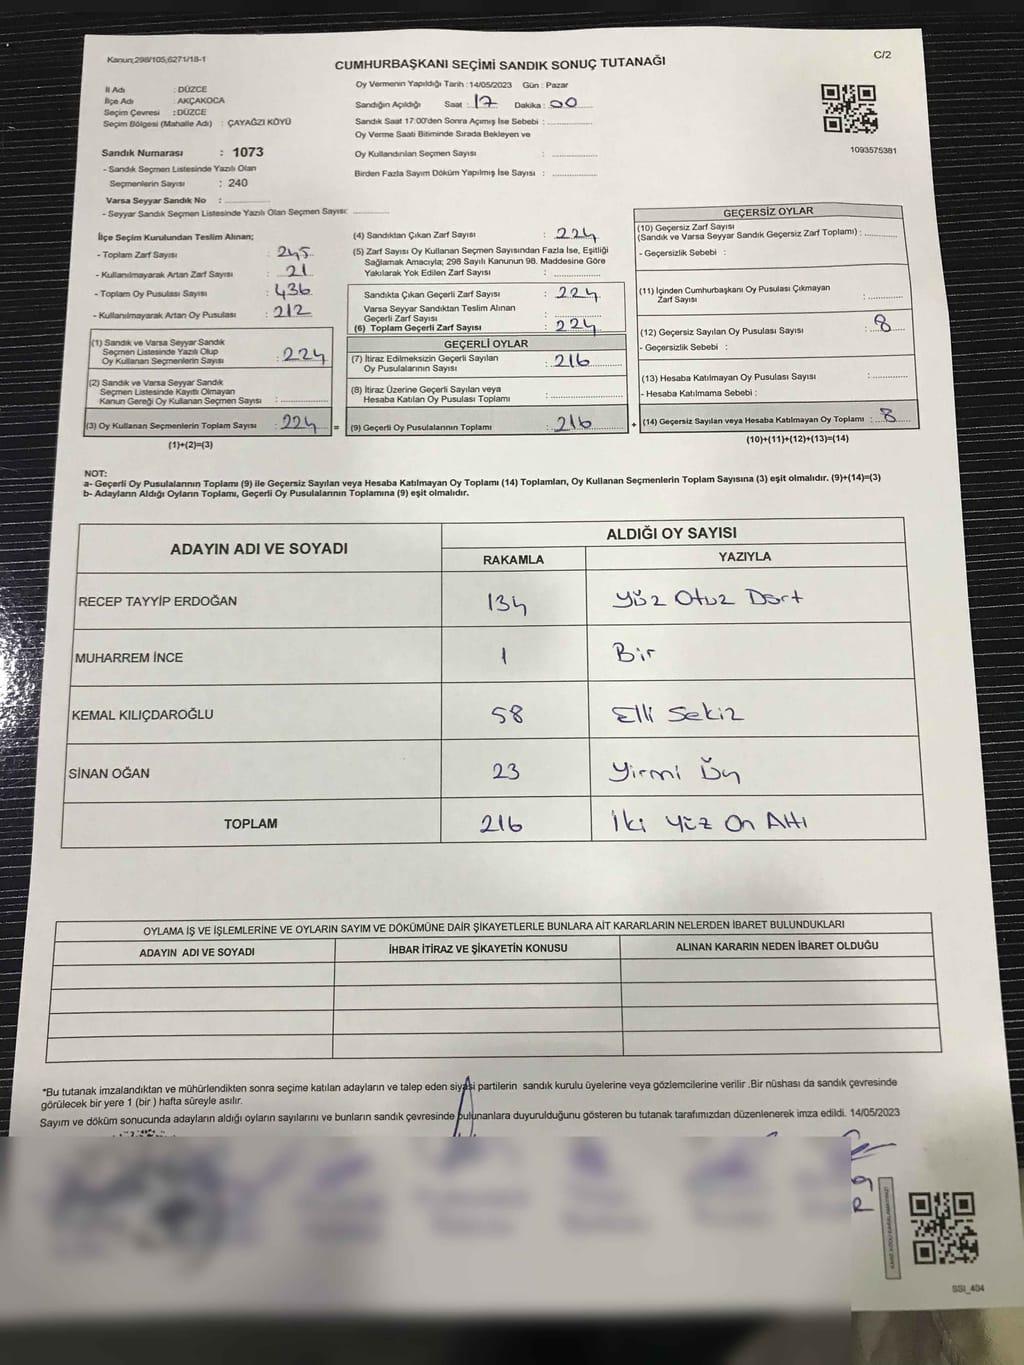 Kanun;298/105;6271/18-1
C/2
CUMHURBAŞKANI SEÇİMİ SANDIK SONUÇ TUTANAĞI
İl Adı : DÜZCE
İlçe Adı : AKÇAKOCA
Seçim Çevresi : DÜZCE
Seçim Bölgesi (Mahalle Adı) : ÇAYAĞZI KÖYÜ
Sandık Numarası : 1073
- Sandık Seçmen Listesinde Yazılı Olan
Seçmenlerin Sayısı : 240
Varsa Seyyar Sandık No : ............
- Seyyar Sandık Seçmen Listesinde Yazılı Olan Seçmen Sayısı: ............
Oy Vermenin Yapıldığı Tarih : 14/05/2023 Gün : Pazar
Sandığın Açıldığı Saat : 17 Dakika : 00
Sandık Saat 17:00'den Sonra Açımış İse Sebebi : ............
Oy Verme Saati Bitiminde Sırada Bekleyen ve
Oy Kullandırılan Seçmen Sayısı : ............
Birden Fazla Sayım Döküm Yapılmış İse Sayısı : ............
1093575381
İlçe Seçim Kurulundan Teslim Alınan;
- Toplam Zarf Sayısı : 245
- Kullanılmayarak Artan Zarf Sayısı : 21
- Toplam Oy Pusulası Sayısı : 436
- Kullanılmayarak Artan Oy Pusulası : 212
(1) Sandık ve Varsa Seyyar Sandık
Seçmen Listesinde Yazılı Olup
Oy Kullanan Seçmenlerin Sayısı : 224
(2) Sandık ve Varsa Seyyar Sandık
Seçmen Listesinde Kayıtlı Olmayan
Kanun Gereği Oy Kullanan Seçmen Sayısı : ............
(3) Oy Kullanan Seçmenlerin Toplam Sayısı : 224 =
(1)+(2)=(3)
(4) Sandıktan Çıkan Zarf Sayısı : 224
(5) Zarf Sayısı Oy Kullanan Seçmen Sayısından Fazla İse, Eşitliği
Sağlamak Amacıyla; 298 Sayılı Kanunun 98. Maddesine Göre
Yakılarak Yok Edilen Zarf Sayısı : ............
Sandıkta Çıkan Geçerli Zarf Sayısı : 224
Varsa Seyyar Sandıktan Teslim Alınan
Geçerli Zarf Sayısı
(6) Toplam Geçerli Zarf Sayısı : 224
GEÇERLİ OYLAR
(7) İtiraz Edilmeksizin Geçerli Sayılan
Oy Pusulalarının Sayısı : 216
(8) İtiraz Üzerine Geçerli Sayılan veya
Hesaba Katılan Oy Pusulası Toplamı : ............
(9) Geçerli Oy Pusulalarının Toplamı : 216 +
GEÇERSİZ OYLAR
(10) Geçersiz Zarf Sayısı
(Sandık ve Varsa Seyyar Sandık Geçersiz Zarf Toplamı) : ............
- Geçersizlik Sebebi :
(11) İçinden Cumhurbaşkanı Oy Pusulası Çıkmayan
Zarf Sayısı : ............
(12) Geçersiz Sayılan Oy Pusulası Sayısı : 8
- Geçersizlik Sebebi :
(13) Hesaba Katılmayan Oy Pusulası Sayısı : ............
- Hesaba Katılmama Sebebi :
(14) Geçersiz Sayılan veya Hesaba Katılmayan Oy Toplamı : 8
(10)+(11)+(12)+(13)=(14)
NOT:
a- Geçerli Oy Pusulalarının Toplamı (9) ile Geçersiz Sayılan veya Hesaba Katılmayan Oy Toplamı (14) Toplamları, Oy Kullanan Seçmenlerin Toplam Sayısına (3) eşit olmalıdır. (9)+(14)=(3)
b- Adayların Aldığı Oyların Toplamı, Geçerli Oy Pusulalarının Toplamına (9) eşit olmalıdır.
ADAYIN ADI VE SOYADI
ALDIĞI OY SAYISI
RAKAMLA YAZIYLA
RECEP TAYYİP ERDOĞAN 134 Yüz Otuz Dört
MUHARREM İNCE 1 Bir
KEMAL KILIÇDAROĞLU 58 Elli Sekiz
SİNAN OĞAN 23 Yirmi Üç
TOPLAM 216 İki Yüz On Altı
OYLAMA İŞ VE İŞLEMLERİNE VE OYLARIN SAYIM VE DÖKÜMÜNE DAİR ŞİKAYETLERLE BUNLARA AİT KARARLARIN NELERDEN İBARET BULUNDUKLARI
ADAYIN ADI VE SOYADI İHBAR İTİRAZ VE ŞİKAYETİN KONUSU ALINAN KARARIN NEDEN İBARET OLDUĞU
*Bu tutanak imzalandıktan ve mühürlendikten sonra seçime katılan adayların ve talep eden siyasi partilerin sandık kurulu üyelerine veya gözlemcilerine verilir .Bir nüshası da sandık çevresinde
görülecek bir yere 1 (bir ) hafta süreyle asılır.
Sayım ve döküm sonucunda adayların aldığı oyların sayılarını ve bunların sandık çevresinde bulunanlara duyurulduğunu gösteren bu tutanak tarafımızdan düzenlenerek imza edildi. 14/05/2023
SSI_404